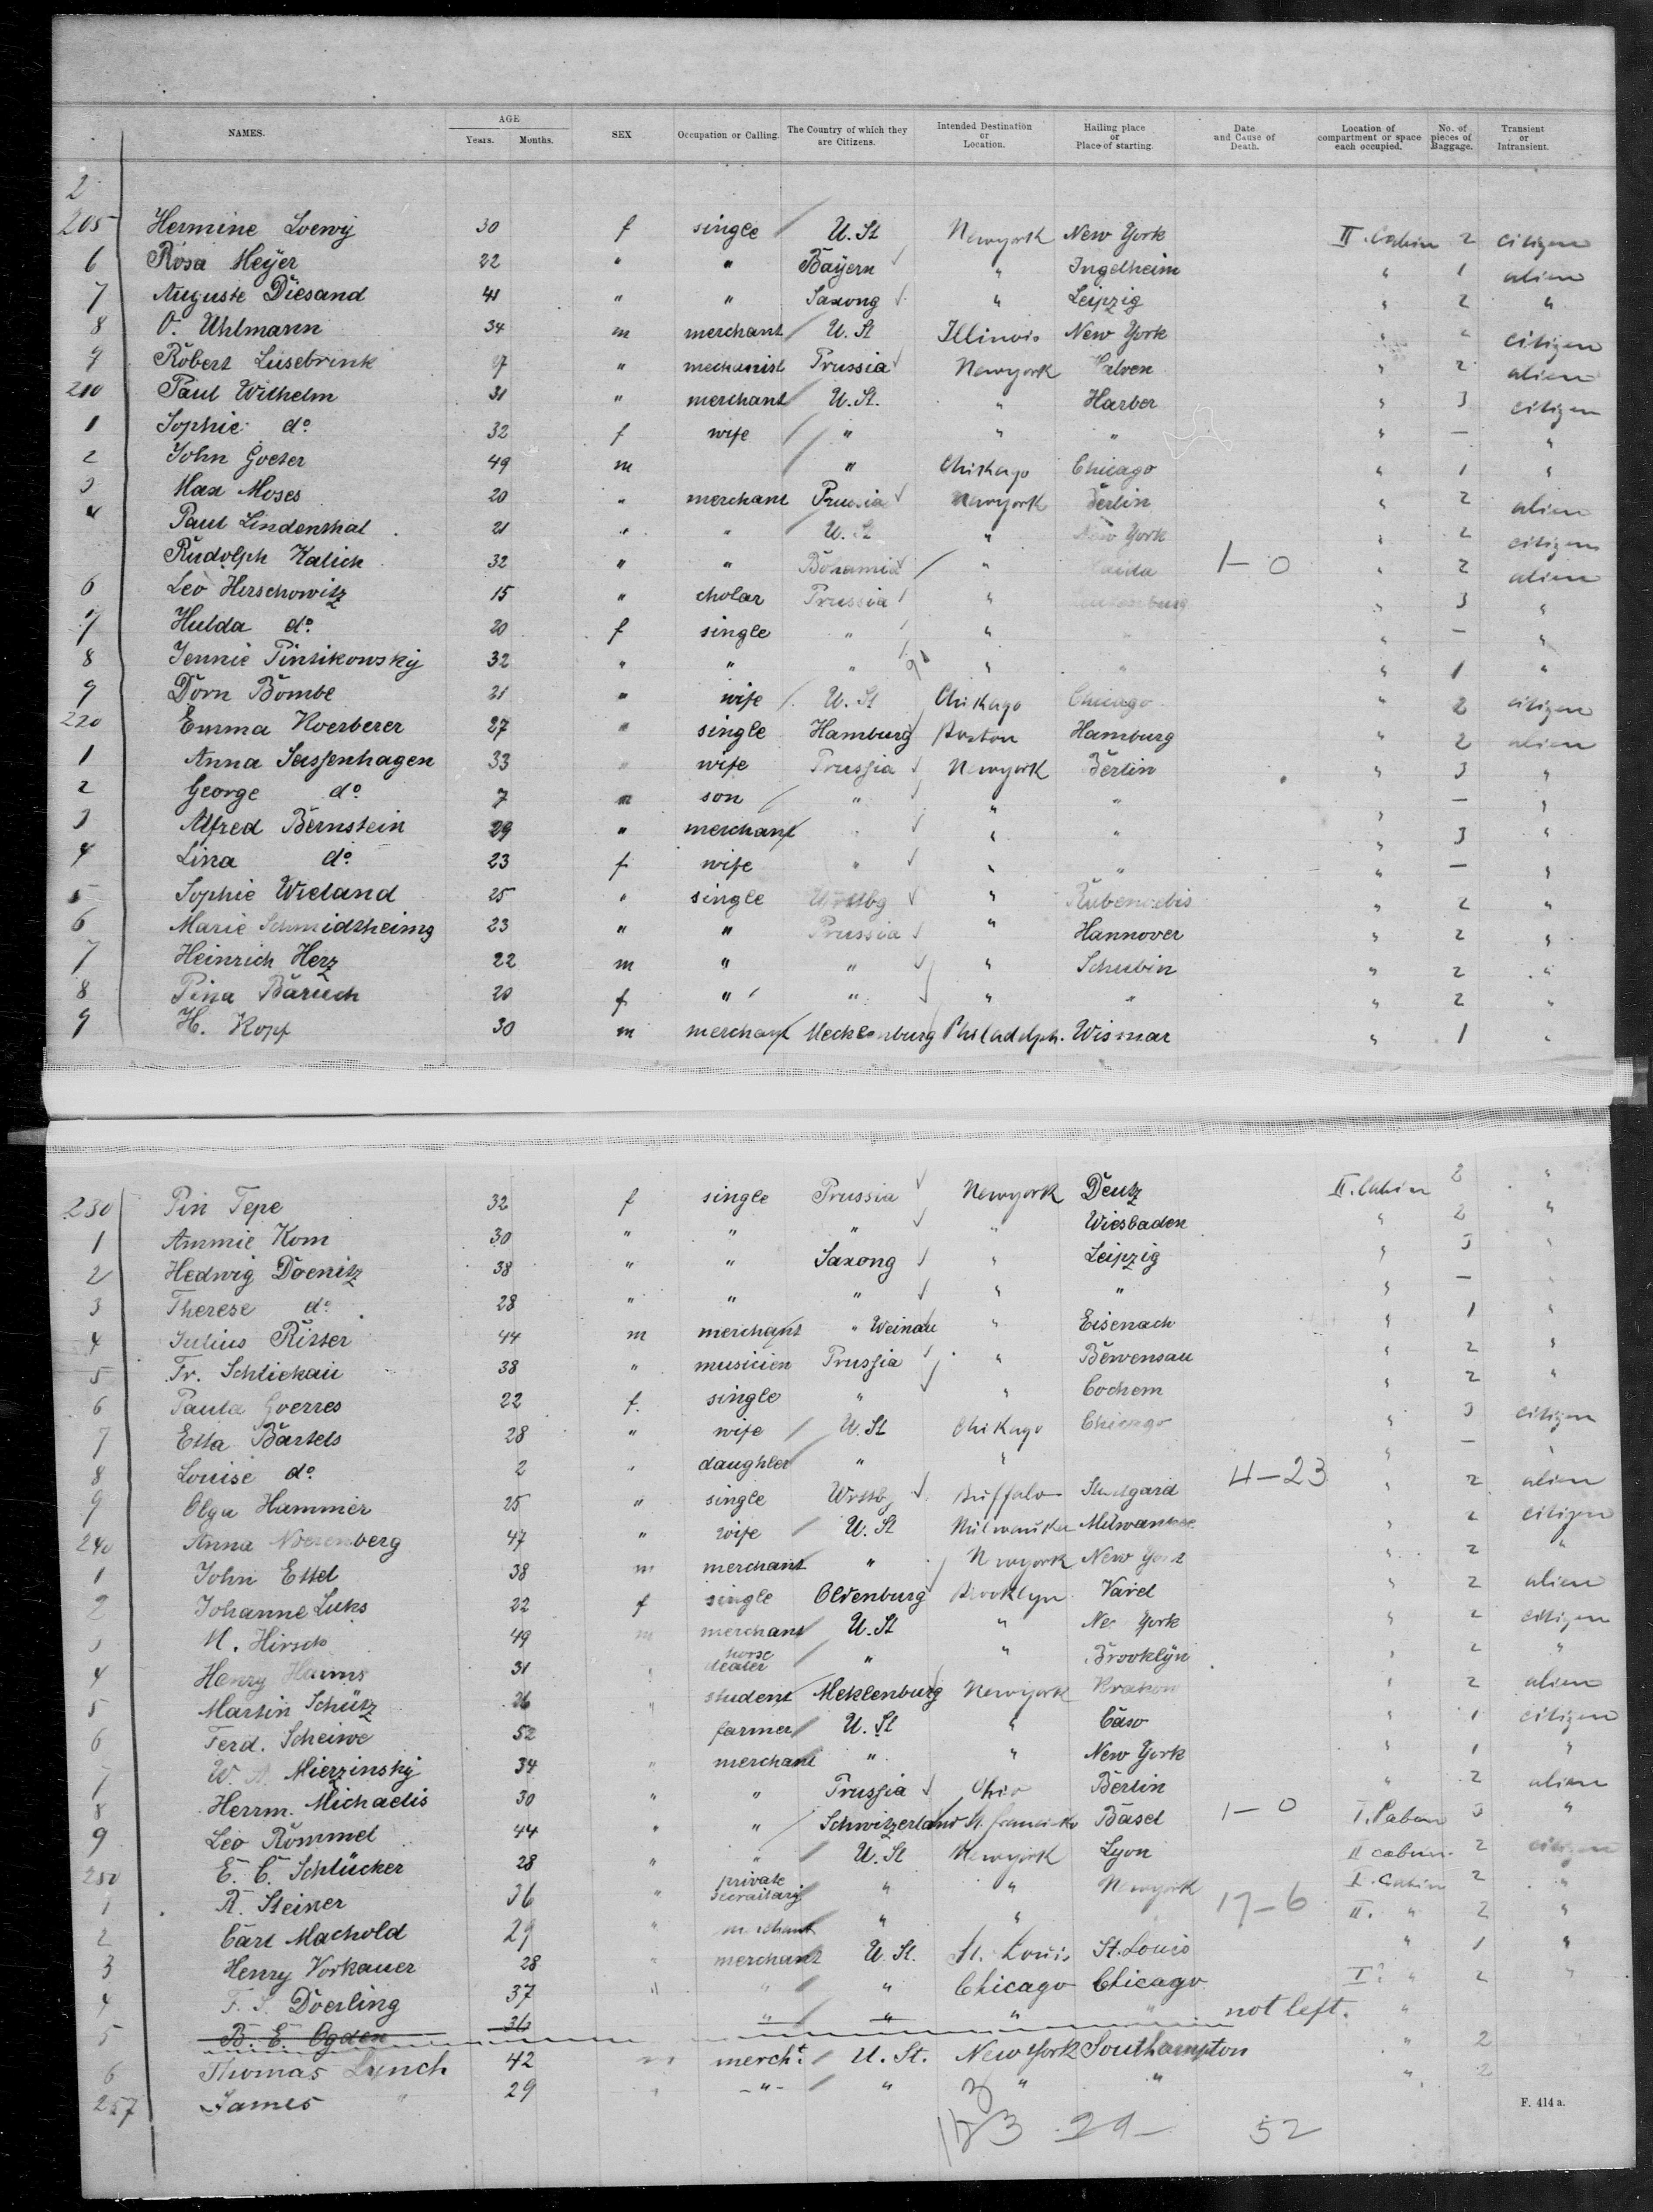 NAMES. AGE Years. Months. SEX Occupation or Calling. The Country of which they are Citizens. Intended Destination or Location. Hailing place or Place of starting. Date and Cause of Death. Location of compartment or space each occupied. No. of pieces of Baggage. Transient or Intransient.
2
205 Hermine Loewy 30 f single U. St Newyork New York II. Cabin 2 citizen
6 Rosa Meyer 22 " " Bayern " Ingelheim " 1 alien
7 Auguste Diesand 41 " " Saxony " Leipzig " 2 "
8 O. Uhlmann 34 m merchant U. St Illinois New York " 2 citizen
9 Robert Lüsebrink " mechanist Prussia Newyork Halven " 2 alien
210 Paul Wilhelm 31 " merchant U. St. " Harber " 3 citizen
1 Sophie do 32 f wife " " " " — "
2 John Goeter 49 m " Chikago Chicago " 1 "
3 Max Moses 20 " merchant Prussia Newyork Berlin " 2 alien
4 Paul Lindenthal 21 " " U. St " New York " 2 citizen
Rudolph Kalich 32 " " Bohamia " 1—0 " 2 alien
6 Leo Herschowitz 15 " cholar Prussia " " 3 "
7 Hulda do 20 f single " " " " — "
8 Jennie Pintikowsky 32 " " " " " " 1 "
9 Dorn Bombe 21 " wife U. St Chikago Chicago " 2 citizen
220 Emma Koerberer 27 " single Hamburg Boston Hamburg " 2 alien
1 Anna Sassenhagen 33 " wife Prussia Newyork Berlin " 3 "
2 George do 7 m son " " " " — "
3 Alfred Bernstein 29 " merchant " " " " 3 "
4 Lina do 23 f wife " " " " — "
5 Sophie Wieland 25 " single Württbg " " 2 "
6 Marie Schmidtheimg 23 " " Prussia " Hannover " 2 "
7 Heinrich Herz 22 m " " " Schubin " 2 "
8 Pina Baruch 20 f " " " " " 2 "
9 H. Kopf 30 m merchant Mecklenburg Philadelph. Wismar " 1 "
230 Pin Tepe 32 f single Prussia Newyork Deutz II. Cabin 2 "
1 Ammie Kom 30 " " " " Wiesbaden " 2 "
2 Hedwig Doenitz 38 " " Saxong " Leipzig " 3 "
3 Therese do 28 " " " " " " — "
4 Julius Ritter 44 m merchant " Weinau " Eisenach " 1 "
5 Fr. Schlickau 38 " musicien Prussia " Bewensau " 2 "
6 Paula Goerres 22 f. single " " Cochem " 2 "
7 Etta Bartels 28 " wife U. St Chikago Chicago " 3 citizen
8 Louise do 2 " daughter " " " — "
9 Olga Hammer 25 " single Wrttbg Buffalo Stutgard 4—23 " 2 alien
240 Anna Noerenberg 47 " wife U. St Milwauke Milwaukee " 2 citizen
1 John Ettel 38 m merchant " Newyork New York " 2 "
2 Johanne Luks 22 f single Oldenburg Brooklyn Varel " 2 alien
3 M. Hirsch 49 m merchant U. St " New York " 2 citizen
4 Henry Harms 31 " horse dealer " " Brooklyn " 2 "
5 Martin Schütz 26 " student Meklenburg Newyork Krakow " 2 alien
6 Ferd. Scheiwe 52 farmer U. St " " 1 citizen
7 W. A. Mierzinsky 34 " merchant " " New York " 1 "
8 Herrm. Michaelis 30 " " Prussia Ohio Berlin " 2 alien
9 Leo Rommel 44 " " Schwitzerland Basel 1—0 I. Cabin 3 "
250 E. C. Schlücker 28 " " U. St Newyork Lyon II cabin 2 citizen
1 R. Steiner 36 " private secraitary " " Newyork I. Cabin 2 "
2 Carl Machold 29 " merchant " " 17—6 II. " 2 "
3 Henry Vorkauer 28 " merchant U. St. St. Louis St. Louis " 1 "
4 F. S. Doerling 37 " " " Chicago Chicago I. " 2 "
5 B. E. Ogden 36 " " " " not left. "
6 Thomas Lynch 42 m mercht. U. St. New York Southampton " 2
257 James " 29 " -"- " " " " 2
F. 414 a.
29— 52